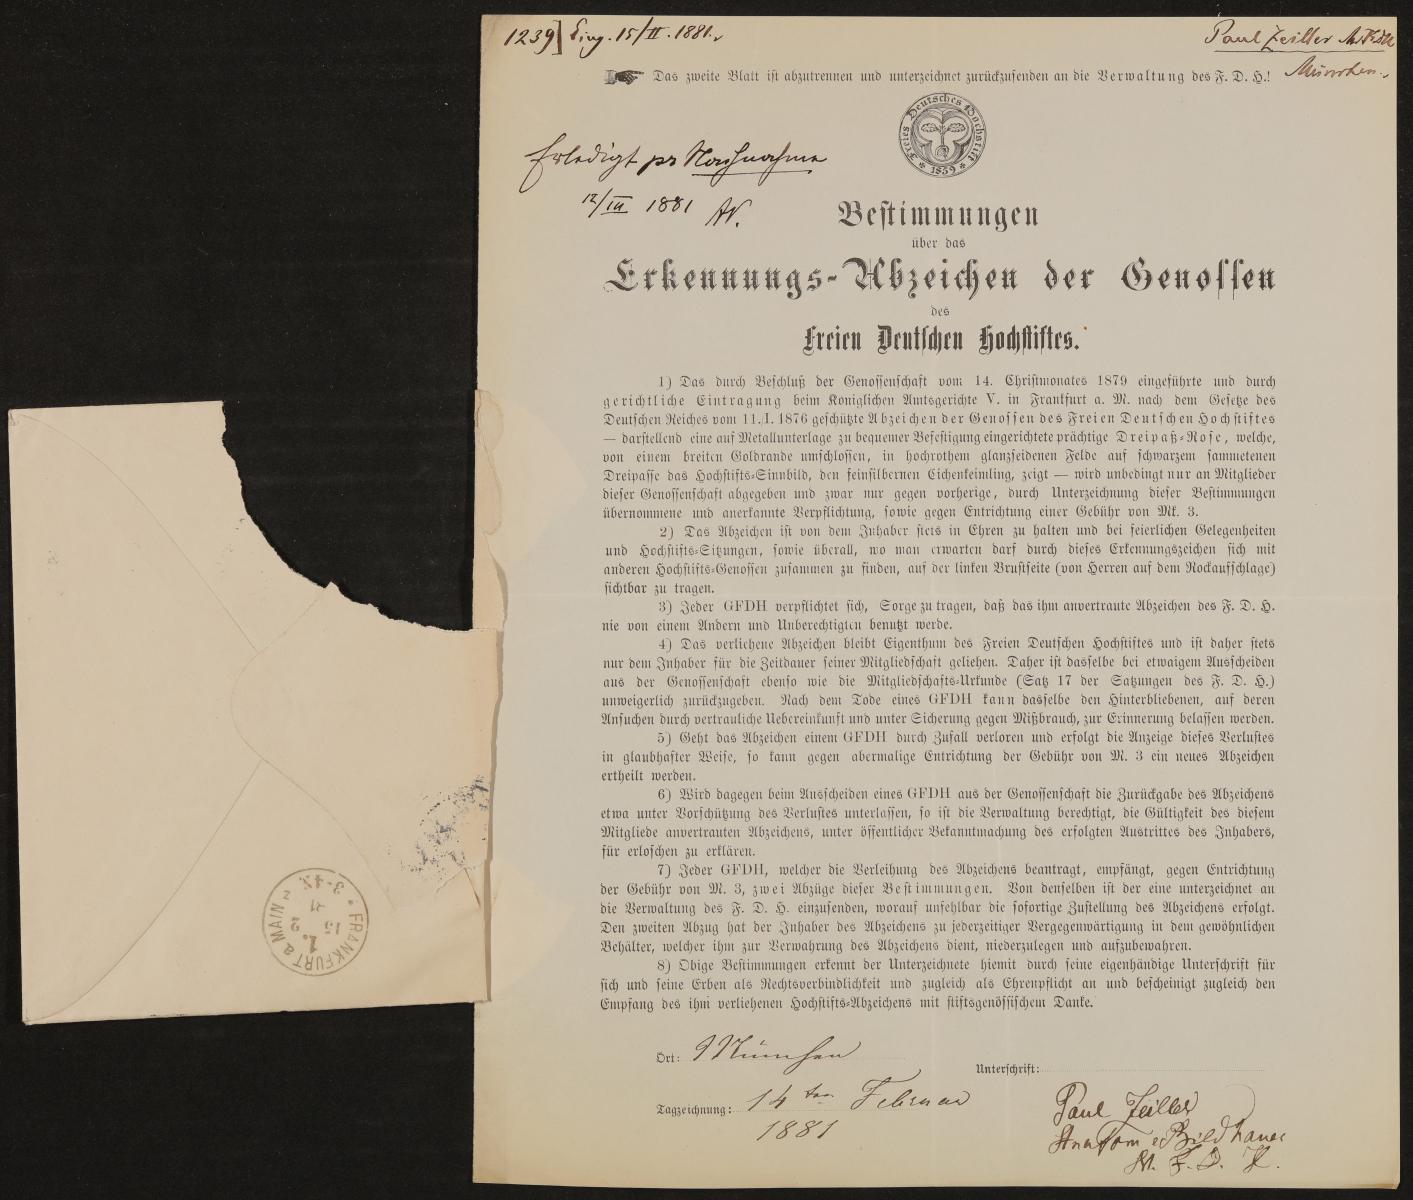 1239] Eing. 15/II. 1881.
Paul Zeiller
München.
Das zweite Blatt ist abzutrennen und unterzeichnet zurückzusenden an die Verwaltung des F. D. H.!
Freies Deutsches Hochstift
* 1859 *
Erledigt pr Nachnahme
12/III 1881
Bestimmungen
über das
Erkennungs-Abzeichen der Genossen
des
Freien Deutschen Hochstiftes.
1) Das durch Beschluß der Genossenschaft vom 14. Christmonates 1879 eingeführte und durch
gerichtliche Eintragung beim Königlichen Amtsgerichte V. in Frankfurt a. M. nach dem Gesetze des
Deutschen Reiches vom 11./I. 1876 geschützte Abzeichen der Genossen des Freien Deutschen Hochstiftes
— darstellend eine auf Metallunterlage zu bequemer Befestigung eingerichtete prächtige Dreipaß-Rose, welche,
von einem breiten Goldrande umschlossen, in hochrothem glanzseidenen Felde auf schwarzem sammetenen
Dreipasse das Hochstifts-Sinnbild, den feinsilbernen Eichenkeimling, zeigt — wird unbedingt nur an Mitglieder
dieser Genossenschaft abgegeben und zwar nur gegen vorherige, durch Unterzeichnung dieser Bestimmungen
übernommene und anerkannte Verpflichtung, sowie gegen Entrichtung einer Gebühr von Mk. 3.
2) Das Abzeichen ist von dem Inhaber stets in Ehren zu halten und bei feierlichen Gelegenheiten
und Hochstifts-Sitzungen, sowie überall, wo man erwarten darf durch dieses Erkennungszeichen sich mit
anderen Hochstifts-Genossen zusammen zu finden, auf der linken Brustseite (von Herren auf dem Rockaufschlage)
sichtbar zu tragen.
3) Jeder GFDH verpflichtet sich, Sorge zu tragen, daß das ihm anvertraute Abzeichen des F. D. H.
nie von einem Andern und Unberechtigten benutzt werde.
4) Das verliehene Abzeichen bleibt Eigenthum des Freien Deutschen Hochstiftes und ist daher stets
nur dem Inhaber für die Zeitdauer seiner Mitgliedschaft geliehen. Daher ist dasselbe bei etwaigem Ausscheiden
aus der Genossenschaft ebenso wie die Mitgliedschafts-Urkunde (Satz 17 der Satzungen des F. D. H.)
unweigerlich zurückzugeben. Nach dem Tode eines GFDH kann dasselbe den Hinterbliebenen, auf deren
Ansuchen durch vertrauliche Uebereinkunft und unter Sicherung gegen Mißbrauch, zur Erinnerung belassen werden.
5) Geht das Abzeichen einem GFDH durch Zufall verloren und erfolgt die Anzeige dieses Verlustes
in glaubhafter Weise, so kann gegen abermalige Entrichtung der Gebühr von M. 3 ein neues Abzeichen
ertheilt werden.
6) Wird dagegen beim Ausscheiden eines GFDH aus der Genossenschaft die Zurückgabe des Abzeichens
etwa unter Vorschützung des Verlustes unterlassen, so ist die Verwaltung berechtigt, die Gültigkeit des diesem
Mitgliede anvertrauten Abzeichens, unter öffentlicher Bekanntmachung des erfolgten Austrittes des Inhabers,
für erloschen zu erklären.
7) Jeder GFDH, welcher die Verleihung des Abzeichens beantragt, empfängt, gegen Entrichtung
der Gebühr von M. 3, zwei Abzüge dieser Bestimmungen. Von denselben ist der eine unterzeichnet an
die Verwaltung des F. D. H. einzusenden, worauf unfehlbar die sofortige Zustellung des Abzeichens erfolgt.
Den zweiten Abzug hat der Inhaber des Abzeichens zu jederzeitiger Vergegenwärtigung in dem gewöhnlichen
Behälter, welcher ihm zur Verwahrung des Abzeichens dient, niederzulegen und aufzubewahren.
8) Obige Bestimmungen erkennt der Unterzeichnete hiemit durch seine eigenhändige Unterschrift für
sich und seine Erben als Rechtsverbindlichkeit und zugleich als Ehrenpflicht an und bescheinigt zugleich den
Empfang des ihm verliehenen Hochstifts-Abzeichens mit stiftsgenössischem Danke.
Ort: München
Unterschrift:
Tagzeichnung: 14 ten Februar
1881
Paul Zeiller
Anatom & Bildhauer
M. F. D. H.
FRANKFURT a. MAIN 2
1.
15 2
3-4N.